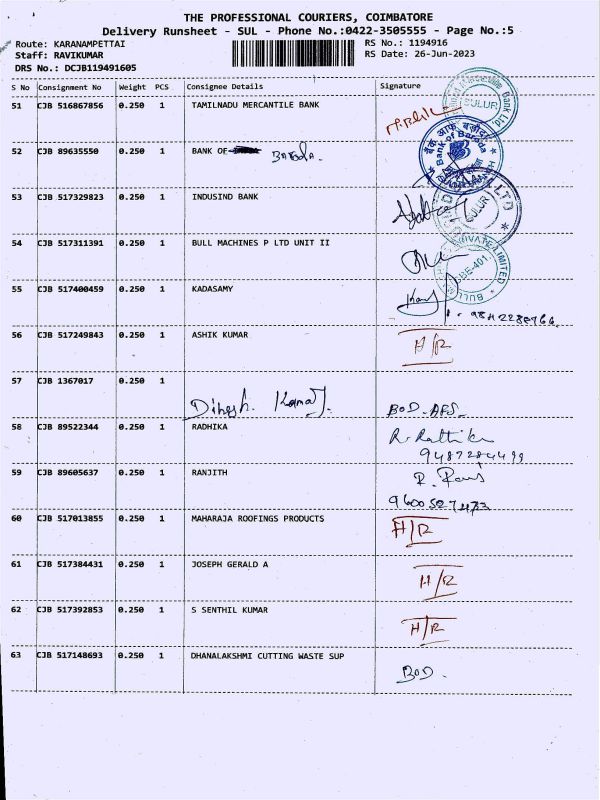 THE PROFESSIONAL COURIERS, COIMBATORE
Delivery Runsheet - SUL - Phone No.:0422-3505555 - Page No.:5
Route: KARANAMPETTAI RS No.: 1194916
Staff: RAVIKUMAR RS Date: 26-Jun-2023
DRS No.: DCJB119491605
S No Consignment No Weight PCS Consignee Details Signature
51 CJB 516867856 0.250 1 TAMILNADU MERCANTILE BANK
Bank Ltd. SULUR
52 CJB 89635550 0.250 1 BANK OF BARODA.
बैंक ऑफ़ बड़ौदा Bank of Baroda
53 CJB 517329823 0.250 1 INDUSIND BANK
LTD SULUR
54 CJB 517311391 0.250 1 BULL MACHINES P LTD UNIT II
PRIVATE LIMITED CBE-401 BULL
55 CJB 517400459 0.250 1 KADASAMY
56 CJB 517249843 0.250 1 ASHIK KUMAR H/R
57 CJB 1367017 0.250 1
Dinesh. Kumar. BOD-AFS-
58 CJB 89522344 0.250 1 RADHIKA
9487284499
59 CJB 89605637 0.250 1 RANJITH
9600527473
60 CJB 517013855 0.250 1 MAHARAJA ROOFINGS PRODUCTS H/R
61 CJB 517384431 0.250 1 JOSEPH GERALD A H/R
62 CJB 517392853 0.250 1 S SENTHIL KUMAR H/R
63 CJB 517148693 0.250 1 DHANALAKSHMI CUTTING WASTE SUP BOD.